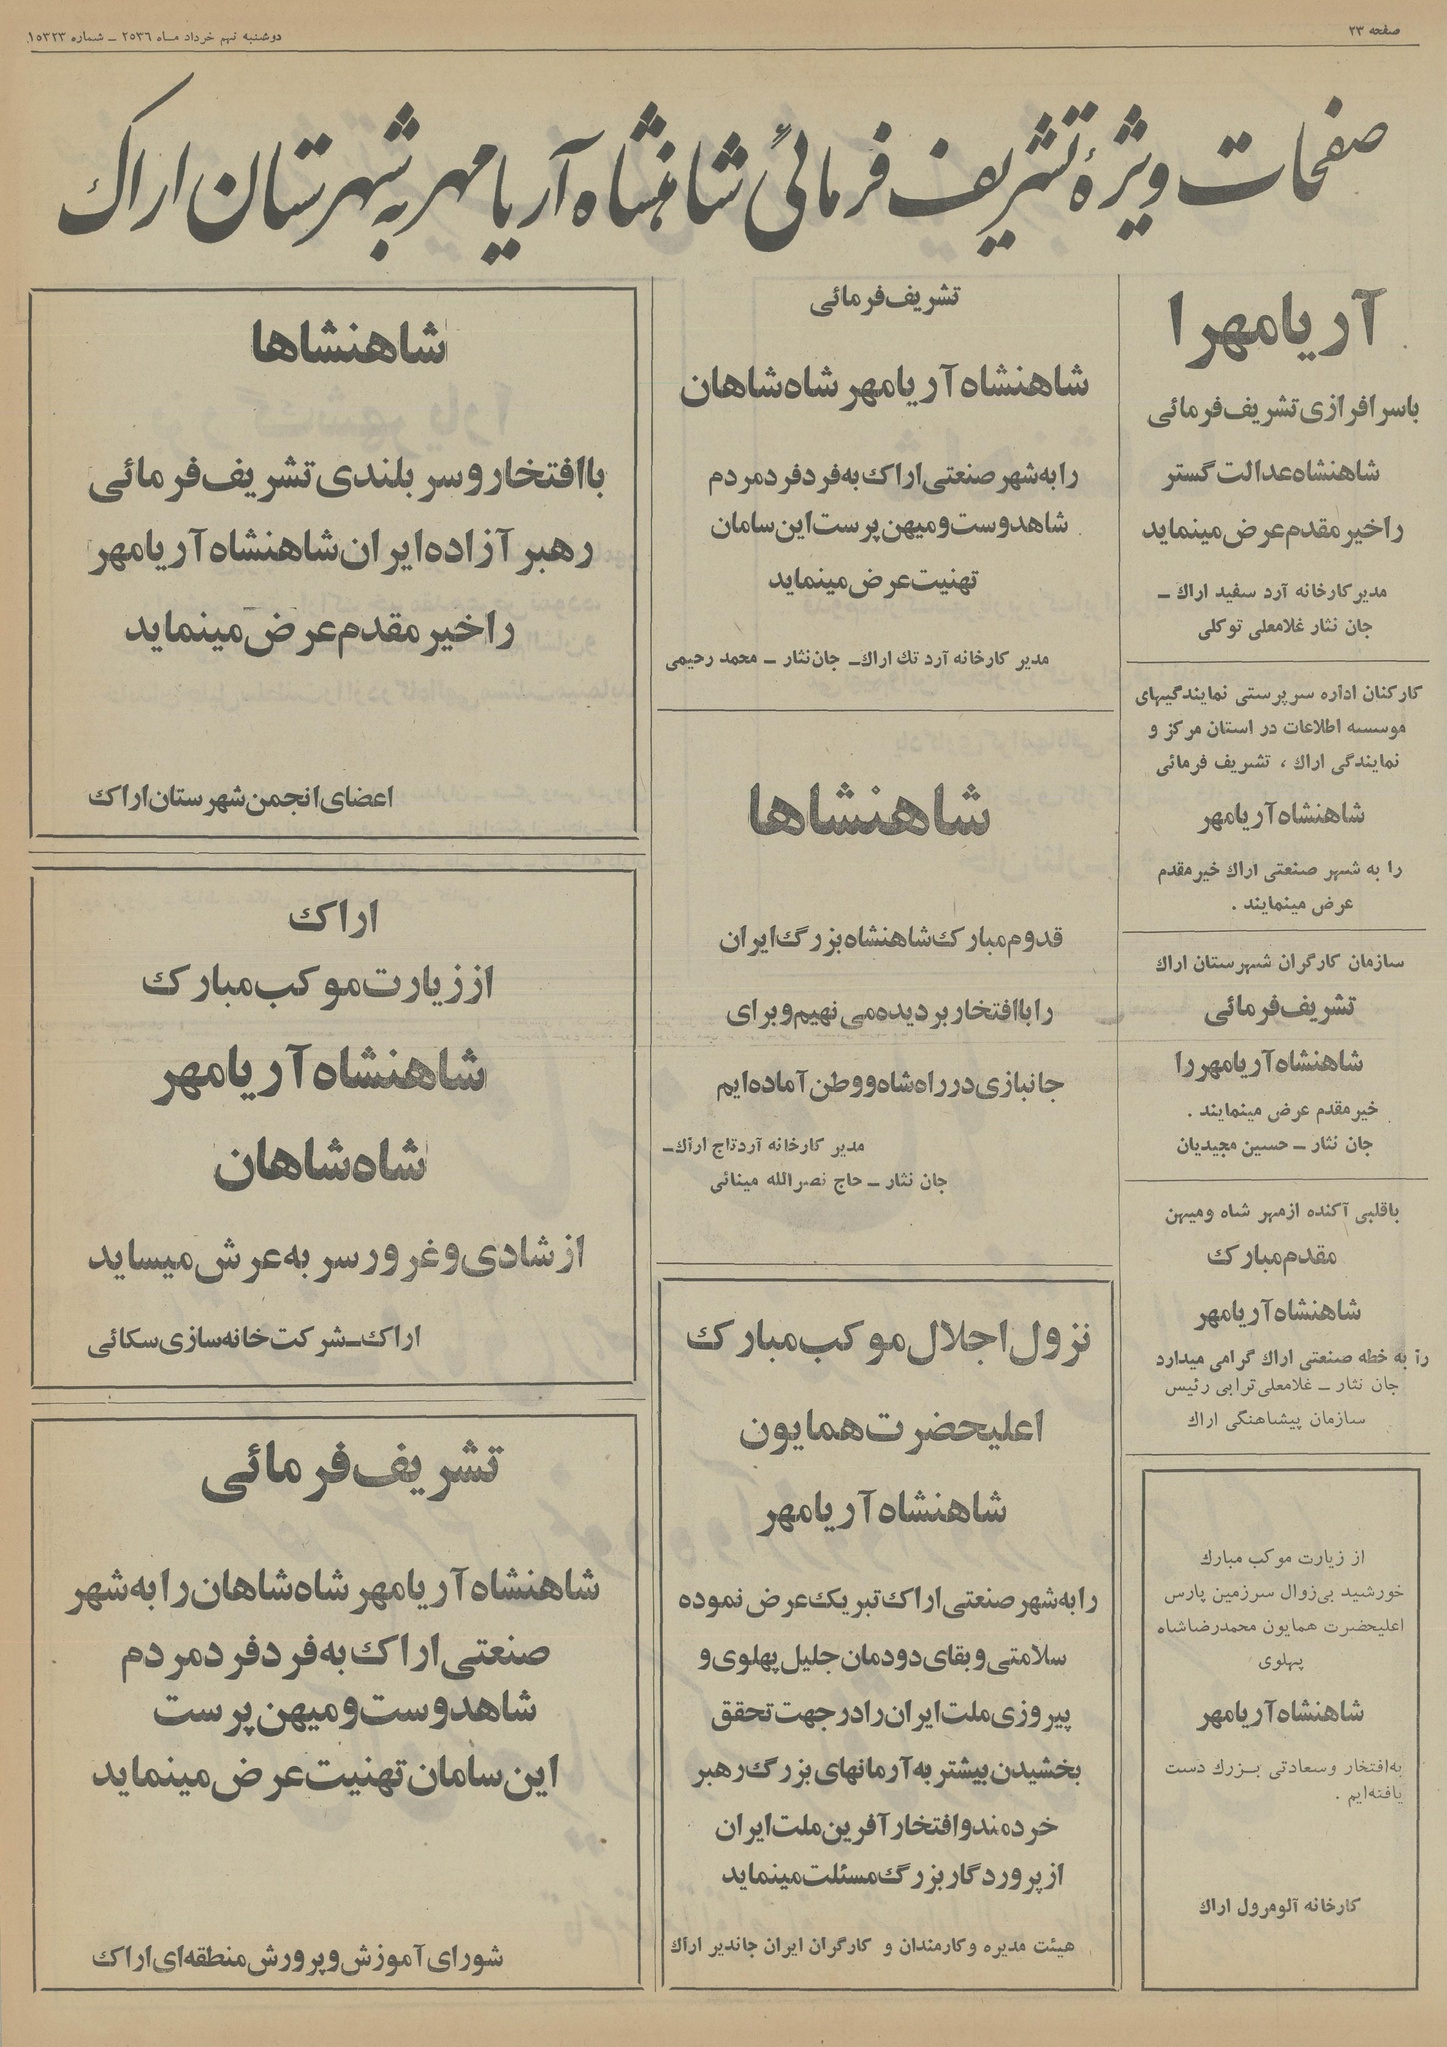 صفحه ۲۳
دوشنبه نهم خرداد ماه ۲۵۳۶ ــ شماره ۱۵۳۲۳
صفحات ویژهٔ تشریف فرمائی شاهنشاه آریامهر به شهرستان اراک
آریامهرا
با سرافرازی تشریف فرمائی
شاهنشاه عدالت گستر
را خیر مقدم عرض مینماید
مدیر کارخانه آرد سفید اراک ــ
جان نثار غلامعلی توکلی
کارکنان اداره سرپرستی نمایندگیهای
موسسه اطلاعات در استان مرکز و
نمایندگی اراک ، تشریف فرمائی
شاهنشاه آریامهر
را به شهر صنعتی اراک خیر مقدم
عرض مینمایند .
سازمان کارگران شهرستان اراک
تشریف فرمائی
شاهنشاه آریامهر را
خیر مقدم عرض مینمایند .
جان نثار ــ حسین مجیدیان
باقلبی آکنده ازمهر شاه ومیهن
مقدم مبارک
شاهنشاه آریامهر
را به خطه صنعتی اراک گرامی میدارد
جان نثار ــ غلامعلی ترابی رئیس
سازمان پیشاهنگی اراک
از زیارت موکب مبارک
خورشید بی‌زوال سرزمین پارس
اعلیحضرت همایون محمدرضاشاه
پهلوی
شاهنشاه آریامهر
به‌افتخار وسعادتی بـزرک دست
یافته‌ایم .
کارخانه آلومرول اراک
تشریف فرمائی
شاهنشاه آریامهر شاه شاهان
را به شهر صنعتی اراک به فرد فرد مردم
شاهدوست و میهن پرست این سامان
تهنیت عرض مینماید
مدیر کارخانه آرد تک اراک ــ جان‌نثار ــ محمد رحیمی
شاهنشاها
قدوم مبارک شاهنشاه بزرگ ایران
را با افتخار بر دیده می نهیم و برای
جانبازی در راه شاه و وطن آماده ایم
مدیر کارخانه آردتاج اراک ــ
جان نثار ــ حاج نصرالله مینائی
نزول اجلال موکب مبارک
اعلیحضرت همایون
شاهنشاه آریامهر
را به شهر صنعتی اراک تبریک عرض نموده
سلامتی و بقای دودمان جلیل پهلوی و
پیروزی ملت ایران را در جهت تحقق
بخشیدن بیشتر به آرمانهای بزرگ رهبر
خردمند و افتخار آفرین ملت ایران
از پروردگار بزرگ مسئلت مینماید
هیئت مدیره وکارمندان و کارگران ایران جاندیر اراک
شاهنشاها
با افتخار و سر بلندی تشریف فرمائی
رهبر آزاده ایران شاهنشاه آریامهر
را خیر مقدم عرض مینماید
اعضای انجمن شهرستان اراک
اراک
از زیارت موکب مبارک
شاهنشاه آریامهر
شاه شاهان
از شادی و غرور سر به عرش میساید
اراک ــ شرکت خانه سازی سکائی
تشریف فرمائی
شاهنشاه آریامهر شاه شاهان را به شهر
صنعتی اراک به فرد فرد مردم
شاهدوست و میهن پرست
این سامان تهنیت عرض مینماید
شورای آموزش و پرورش منطقه ای اراک